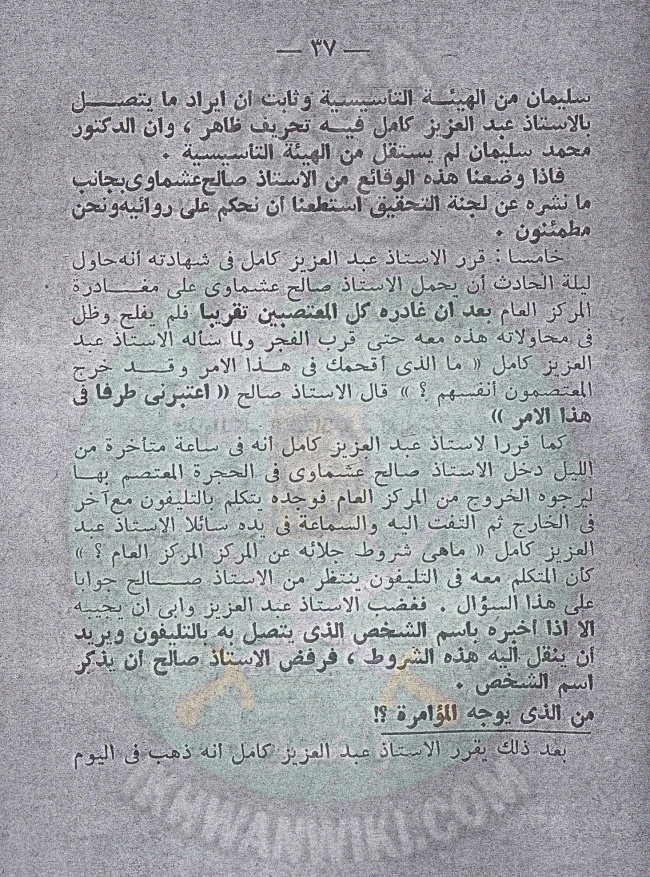 — ٣٧ —
سليمان من الهيئة التأسيسية وثابت ان ايراد ما يتصل
بالاستاذ عبد العزيز كامل فيه تحريف ظاهر ، وان الدكتور
محمد سليمان لم يستقل من الهيئة التأسيسية .
فاذا وضعنا هذه الوقائع من الاستاذ صالح عشماوى بجانب
ما نشره عن لجنة التحقيق استطعنا أن نحكم على روائيه ونحن
مطمئنون .
خامسا : قرر الاستاذ عبد العزيز كامل فى شهادته أنه حاول
ليلة الحادث أن يحمل الاستاذ صالح عشماوى على مغادرة
المركز العام بعد ان غادره كل المعتصبين تقريبا فلم يفلح وظل
فى محاولاته هذه معه حتى قرب الفجر ولما سأله الاستاذ عبد
العزيز كامل « ما الذى أقحمك فى هذا الامر وقد خرج
المعتصمون أنفسهم ؟ » قال الاستاذ صالح (( اعتبرنى طرفا فى
هذا الامر ))
كما قررا لاستاذ عبد العزيز كامل أنه فى ساعة متأخرة من
الليل دخل الاستاذ صالح عشماوى فى الحجرة المعتصم بها
ليرجوه الخروج من المركز العام فوجده يتكلم بالتليفون مع آخر
فى الخارج ثم التفت اليه والسماعة فى يده سائلا الاستاذ عبد
العزيز كامل « ماهى شروط جلائه عن المركز المركز العام ؟ »
كأن المتكلم معه فى التليفون ينتظر من الاستاذ صالح جوابا
على هذا السؤال . فغضب الاستاذ عبد العزيز وابى ان يجيبه
الا اذا أخبره باسم الشخص الذى يتصل به بالتليفون ويريد
أن ينقل اليه هذه الشروط ، فرفض الاستاذ صالح أن يذكر
اسم الشخص .
من الذى يوجه المؤامرة ؟!
بعد ذلك يقرر الاستاذ عبد العزيز كامل أنه ذهب فى اليوم
IKHWANWIKI.COM